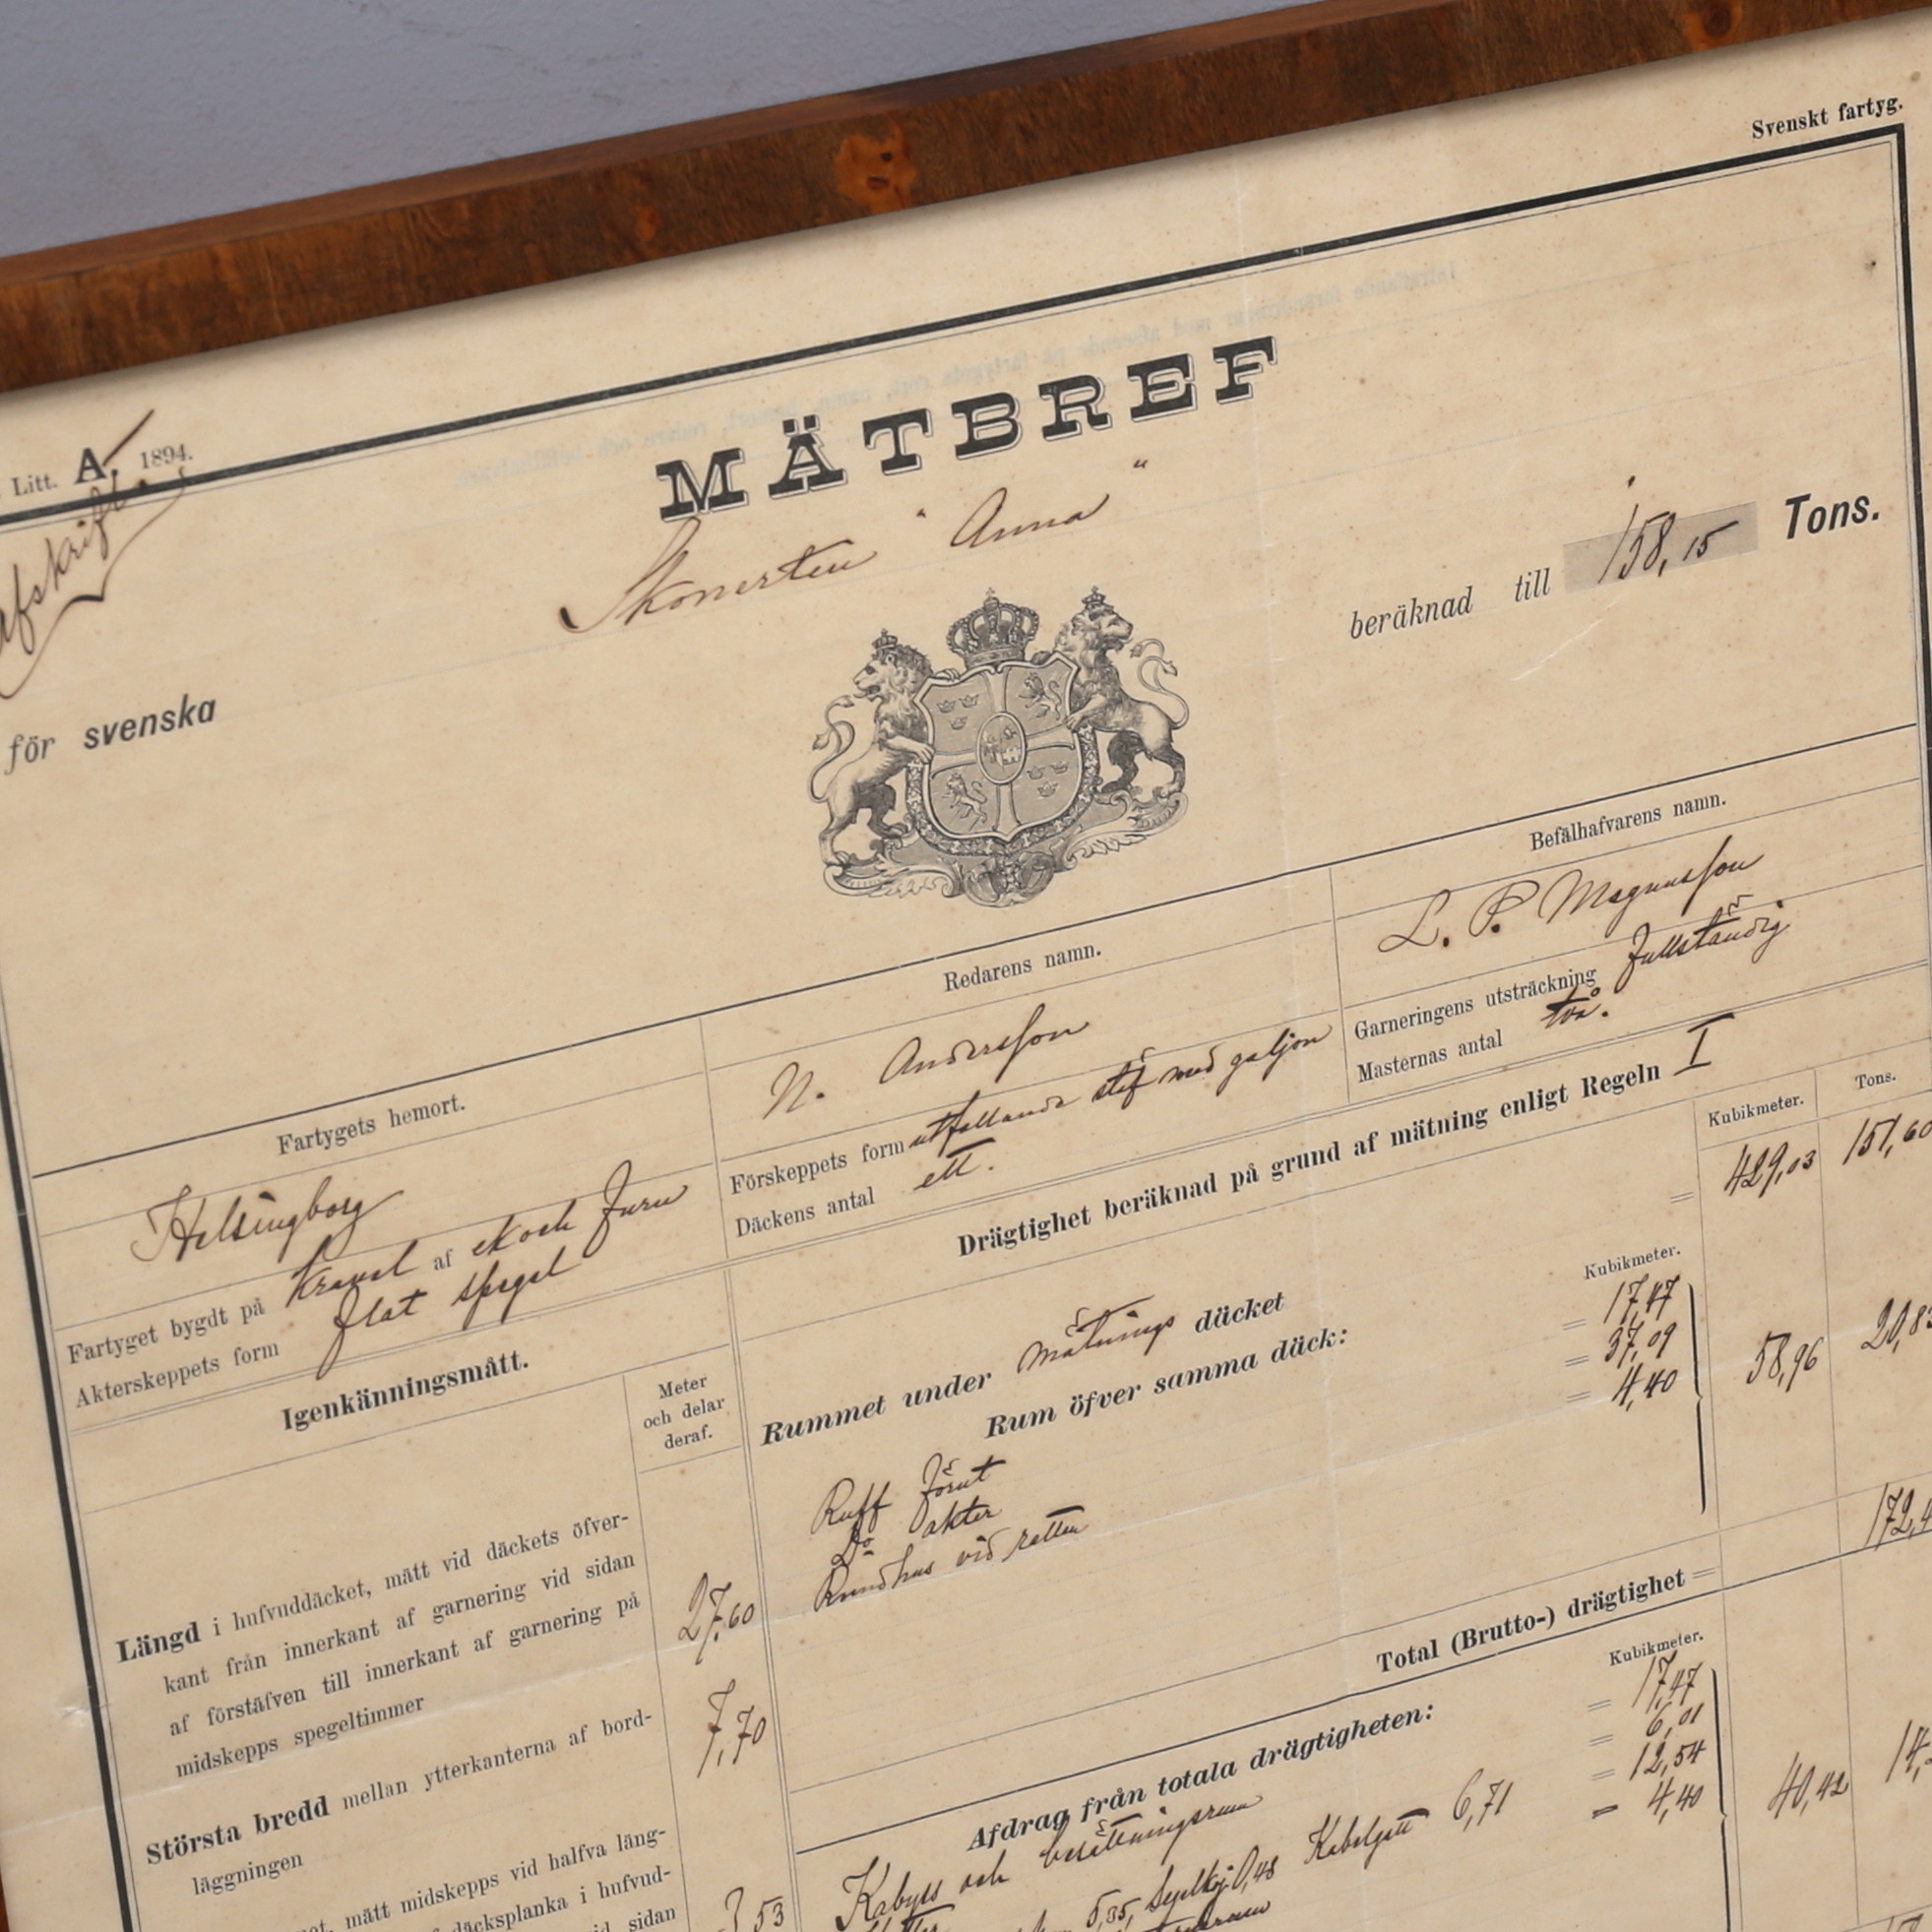 Svenskt fartyg.
Litt. A. 1894.
Afskrift.
MÄTBREF
för svenska
Skonerten "Anna"
beräknad till 158,15 Tons.
Fartygets hemort.
Redarens namn.
Befälhafvarens namn.
Helsingborg
N. Andersson
L. P. Magnusson
Fartyget bygdt på Kravel af ek och furu
Akterskeppets form flat spegel
Förskeppets form utfallande stäf med galjon
Däckens antal ett.
Garneringens utsträckning fullständig
Masternas antal två.
Igenkänningsmått.
Meter
och delar
deraf.
Längd i hufvuddäcket, mått vid däckets öfver-
kant från innerkant af garnering vid sidan
af förstäfven till innerkant af garnering på
midskepps spegeltimmer
27,60
Största bredd mellan ytterkanterna af bord-
läggningen
7,70
mått midskepps vid halfva läng-
däcksplanka i hufvud-
sidan
3,53
Drägtighet beräknad på grund af mätning enligt Regeln I
Kubikmeter.
Tons.
Rummet under mätnings däcket = 429,03 151,60
Rum öfver samma däck:
Kubikmeter.
Ruff förut = 17,47
Do akter = 37,09
Rundhus vid ratten = 4,40
58,96 20,83
Total (Brutto-) drägtighet = 172,4
Afdrag från totala drägtigheten:
Kubikmeter.
Kabyss och besättningsrum = 17,47
= 6,01
5,35, Segelkoj 0,48 Kabelgatt 6,71 = 12,54
= 4,40
40,42 14,